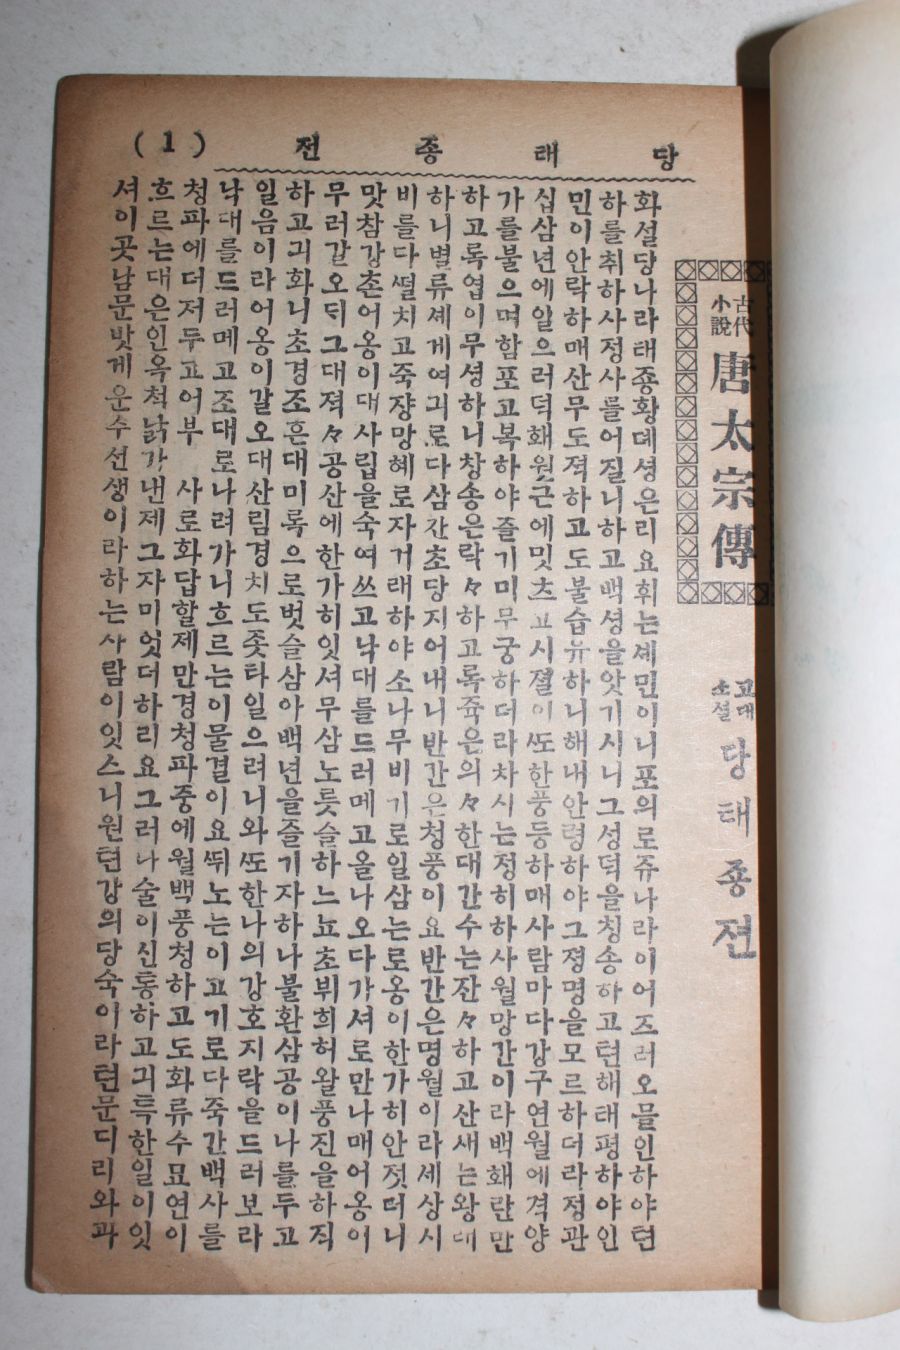 당 태 종 전
( 1 )
古代
小說
唐太宗傳
고대
소설
당태죵젼
화셜당나라태죵황뎨셩은리요휘는셰민이니포의로쥬나라이어즈러오믈인하야텬
하를취하사졍사를어질니하고백셩을앗기시니그성덕을칭송하고텬해태평하야인
민이안락하매산무도젹하고도불습유하니해내안령하야그졍명을모르하더라정관
십삼년에일으러덕홰원근에밋츠고시졀이또한풍등하매사람마다강구연월에격양
가를불으며함포고복하야즐기미무궁하더라차시는정히하사월망간이라백홰란만
하고록엽이무셩하니창송은락々하고록쥭은의々한대간수는잔々하고산새는왕래
하니별류셰게여긔로다삼간초당지어내니반간은청풍이요반간은명월이라세상시
비를다떨치고죽쟝망혜로자거래하야소나무비기로일삼는로옹이한가히안젓더니
맛참강촌어옹이대사립을숙여쓰고낙대를드러메고올나오다가셔로만나매어옹이
무러갈오되그대젹々공산에한가히잇셔무삼노릇슬하느뇨초뷔희허왈풍진을하직
하고긔화니초경조흔대미록으로벗슬삼아백년을즐기자하나불환삼공이나를두고
일음이라어옹이갈오대산림경치도죳타일으려니와또한나의강호지락을드러보라
낙대를드러메고조대로나려가니흐르는이물결이요뛰노는이고기로다죽간백사를
청파에더저두고어부 사로화답할제만경청파중에월백풍청하고도화류수묘연이
흐르는대은인옥쳑낡가낸제그자미엇더하리요그러나술이신통하고긔특한일이잇
셔이곳남문밧게운수선생이라하는사람이잇스니원텬강의당숙이라텬문디리와과